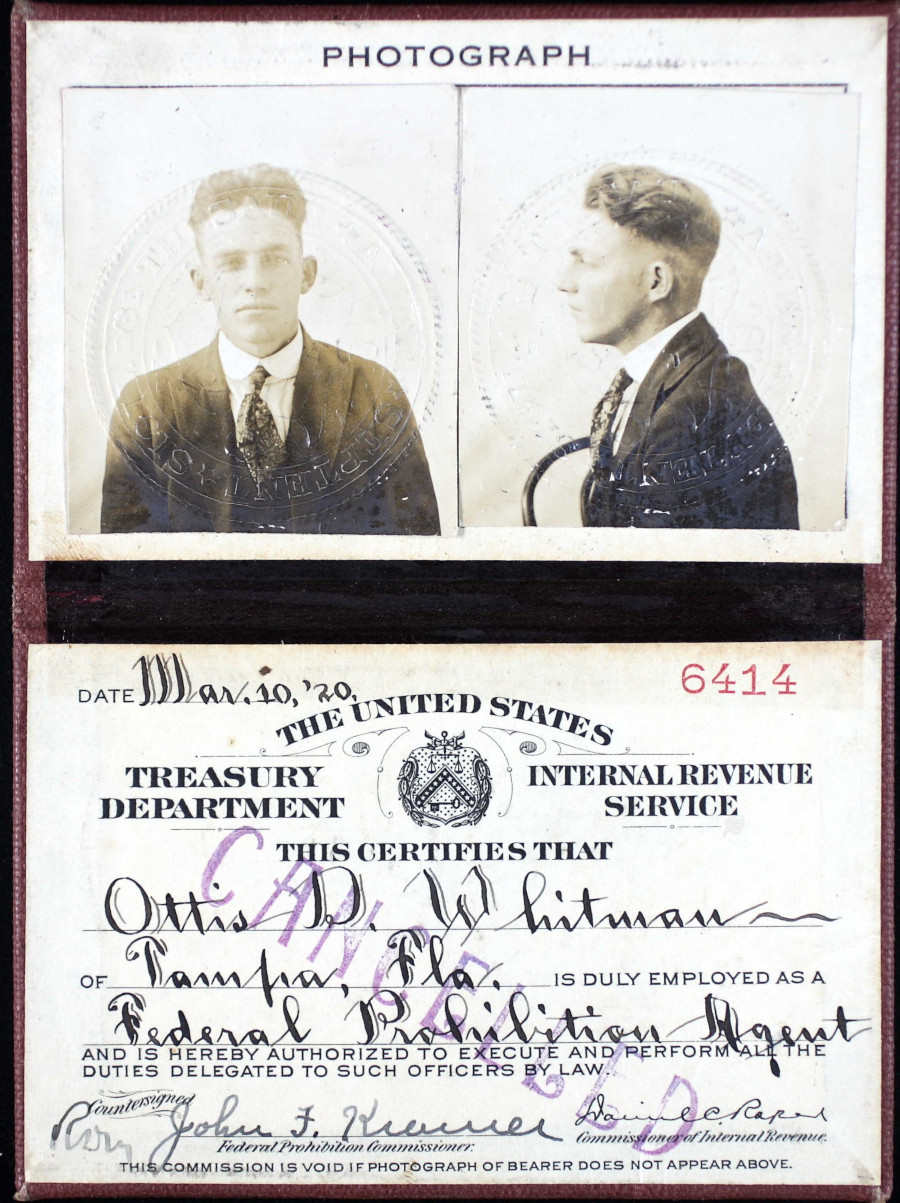 PHOTOGRAPH
DATE Mar. 10, '20.
6414
THE UNITED STATES
TREASURY DEPARTMENT
INTERNAL REVENUE SERVICE
THIS CERTIFIES THAT
CANCELLED
Ottis D. Whitman
OF Tampa, Fla. IS DULY EMPLOYED AS A
Federal Prohibition Agent
AND IS HEREBY AUTHORIZED TO EXECUTE AND PERFORM ALL THE
DUTIES DELEGATED TO SUCH OFFICERS BY LAW.
Countersigned
John F. Kramer
Daniel C. Roper
Federal Prohibition Commissioner.
Commissioner of Internal Revenue.
THIS COMMISSION IS VOID IF PHOTOGRAPH OF BEARER DOES NOT APPEAR ABOVE.